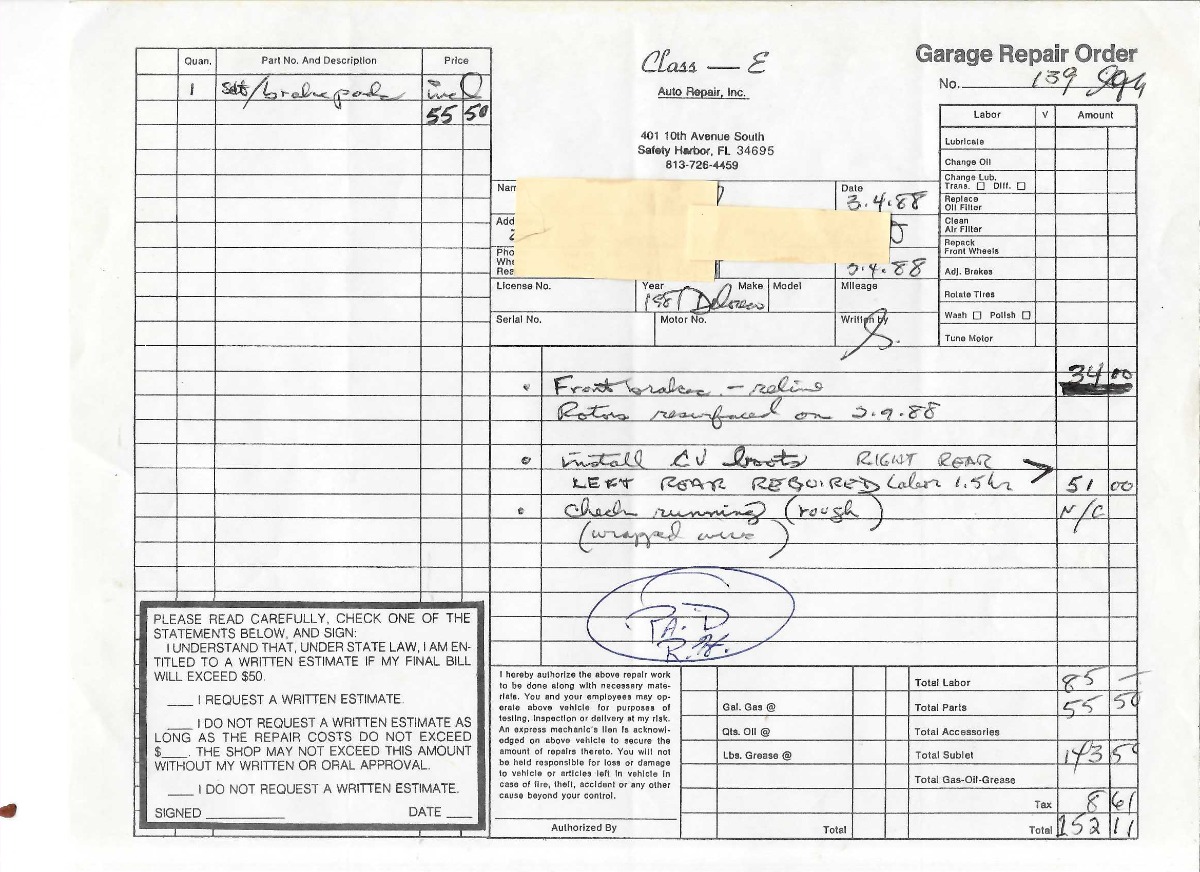 Quan. Part No. And Description Price
1 set/brake pads incl
55 50
Class — E
Auto Repair, Inc.
401 10th Avenue South
Safety Harbor, FL 34695
813-726-4459
Garage Repair Order
No. 139
Labor V Amount
Lubricate
Change Oil
Change Lub.
Trans. ☐ Diff. ☐
Replace
Oil Filter
Clean
Air Filter
Repack
Front Wheels
Adj. Brakes
Rotate Tires
Wash ☐ Polish ☐
Tune Motor
Nam
Date
3.4.88
Add
Pho
Whe
Rea
3.4.88
License No. Year Make Model Mileage
1981 Delorean
Serial No. Motor No. Written by
S.
34 00
• Front brakes - reline
Rotors resurfaced on 3.9.88
• install CV boots RIGHT REAR
LEFT REAR REQUIRED Labor 1.5 hr 51 00
• Check running (rough) N/C
(wrapped wire)
PA.D
R.H.
PLEASE READ CAREFULLY, CHECK ONE OF THE
STATEMENTS BELOW, AND SIGN:
I UNDERSTAND THAT, UNDER STATE LAW, I AM EN-
TITLED TO A WRITTEN ESTIMATE IF MY FINAL BILL
WILL EXCEED $50.
___ I REQUEST A WRITTEN ESTIMATE.
___ I DO NOT REQUEST A WRITTEN ESTIMATE AS
LONG AS THE REPAIR COSTS DO NOT EXCEED
$____. THE SHOP MAY NOT EXCEED THIS AMOUNT
WITHOUT MY WRITTEN OR ORAL APPROVAL.
___ I DO NOT REQUEST A WRITTEN ESTIMATE.
SIGNED __________ DATE ___
I hereby authorize the above repair work
to be done along with necessary mate-
rials. You and your employees may op-
erate above vehicle for purposes of
testing, inspection or delivery at my risk.
An express mechanic's lien is acknowl-
edged on above vehicle to secure the
amount of repairs thereto. You will not
be held responsible for loss or damage
to vehicle or articles left in vehicle in
case of fire, theft, accident or any other
cause beyond your control.
Authorized By
Gal. Gas @
Qts. Oil @
Lbs. Grease @
Total
Total Labor 85 —
Total Parts 55 50
Total Accessories
Total Sublet 143 50
Total Gas-Oil-Grease
Tax 8 61
Total 152 11